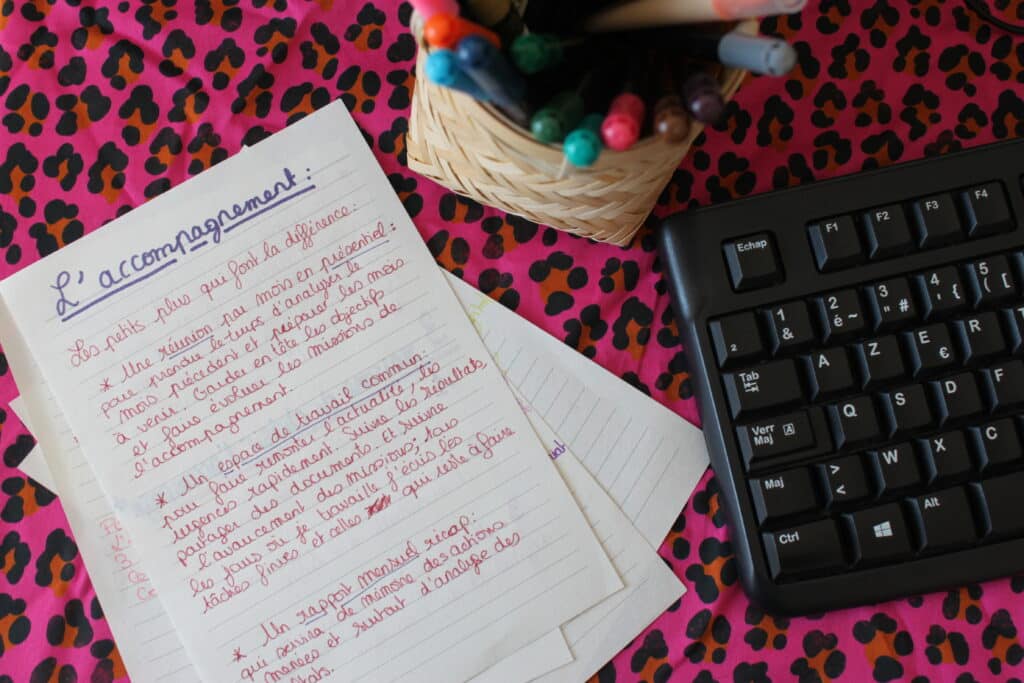 L'accompagnement :
Les petits plus que font la différence :
* Une réunion par mois en présentiel :
pour prendre le temps d'analyser le
mois précédent et préparer les mois
à venir. Garder en tête les objectifs
et faire évoluer les missions de
l'accompagnement.
* Un espace de travail commun :
pour faire remonter l'actualité, les
urgences rapidement. Suivre les résultats
partager des documents. et suivre
l'avancement des missions, tous
les jours où je travaille j'écris les
tâches finies. et celles qui reste à faire
* Un rapport mensuel recap :
qui servira de mémoire des actions
menées et surtout d'analyse des
Echap
F1 F2 F3 F4
2 1 & 2 é ~ 3 " # 4 ' { 5 ( [
Tab A Z E € R T
Verr Maj A Q S D F
Maj > < W X C
Ctrl Alt